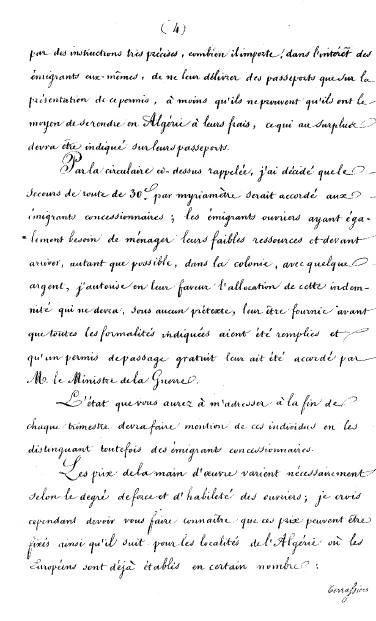 (4)
par des instructions très précises, combien il importe, dans l'intérêt des
émigrants eux-mêmes, de ne leur délivrer des passeports que sur la
présentation de ce permis, à moins qu'ils ne prouvent qu'ils ont le
moyen de se rendre en Algérie à leurs frais, ce qui au surplus
devra être indiqué sur leurs passeports.
Par la circulaire ci-dessus rappelée, j'ai décidé que le
secours de route de 30c. par myriamètre serait accordé aux
émigrants concessionnaires; les émigrants ouvriers ayant éga-
lement besoin de ménager leurs faibles ressources et devant
arriver, autant que possible, dans la colonie, avec quelque
argent, j'autorise en leur faveur l'allocation de cette indem-
nité qui ne devra, sous aucun prétexte, leur être fournie avant
que toutes les formalités indiquées aient été remplies et
qu'un permis de passage gratuit leur ait été accordé par
M. le Ministre de la Guerre.
L'état que vous aurez à m'adresser à la fin de
chaque trimestre devra faire mention de ces individus en les
distinguant toutefois des émigrants concessionnaires.
Les prix de la main d'œuvre varient nécessairement
selon le degré de force et d'habileté des ouvriers; je crois
cependant devoir vous faire connaître que ces prix peuvent être
fixés ainsi qu'il suit pour les localités de l'Algérie où les
Européens sont déjà établis en certain nombre:
Terrassiers